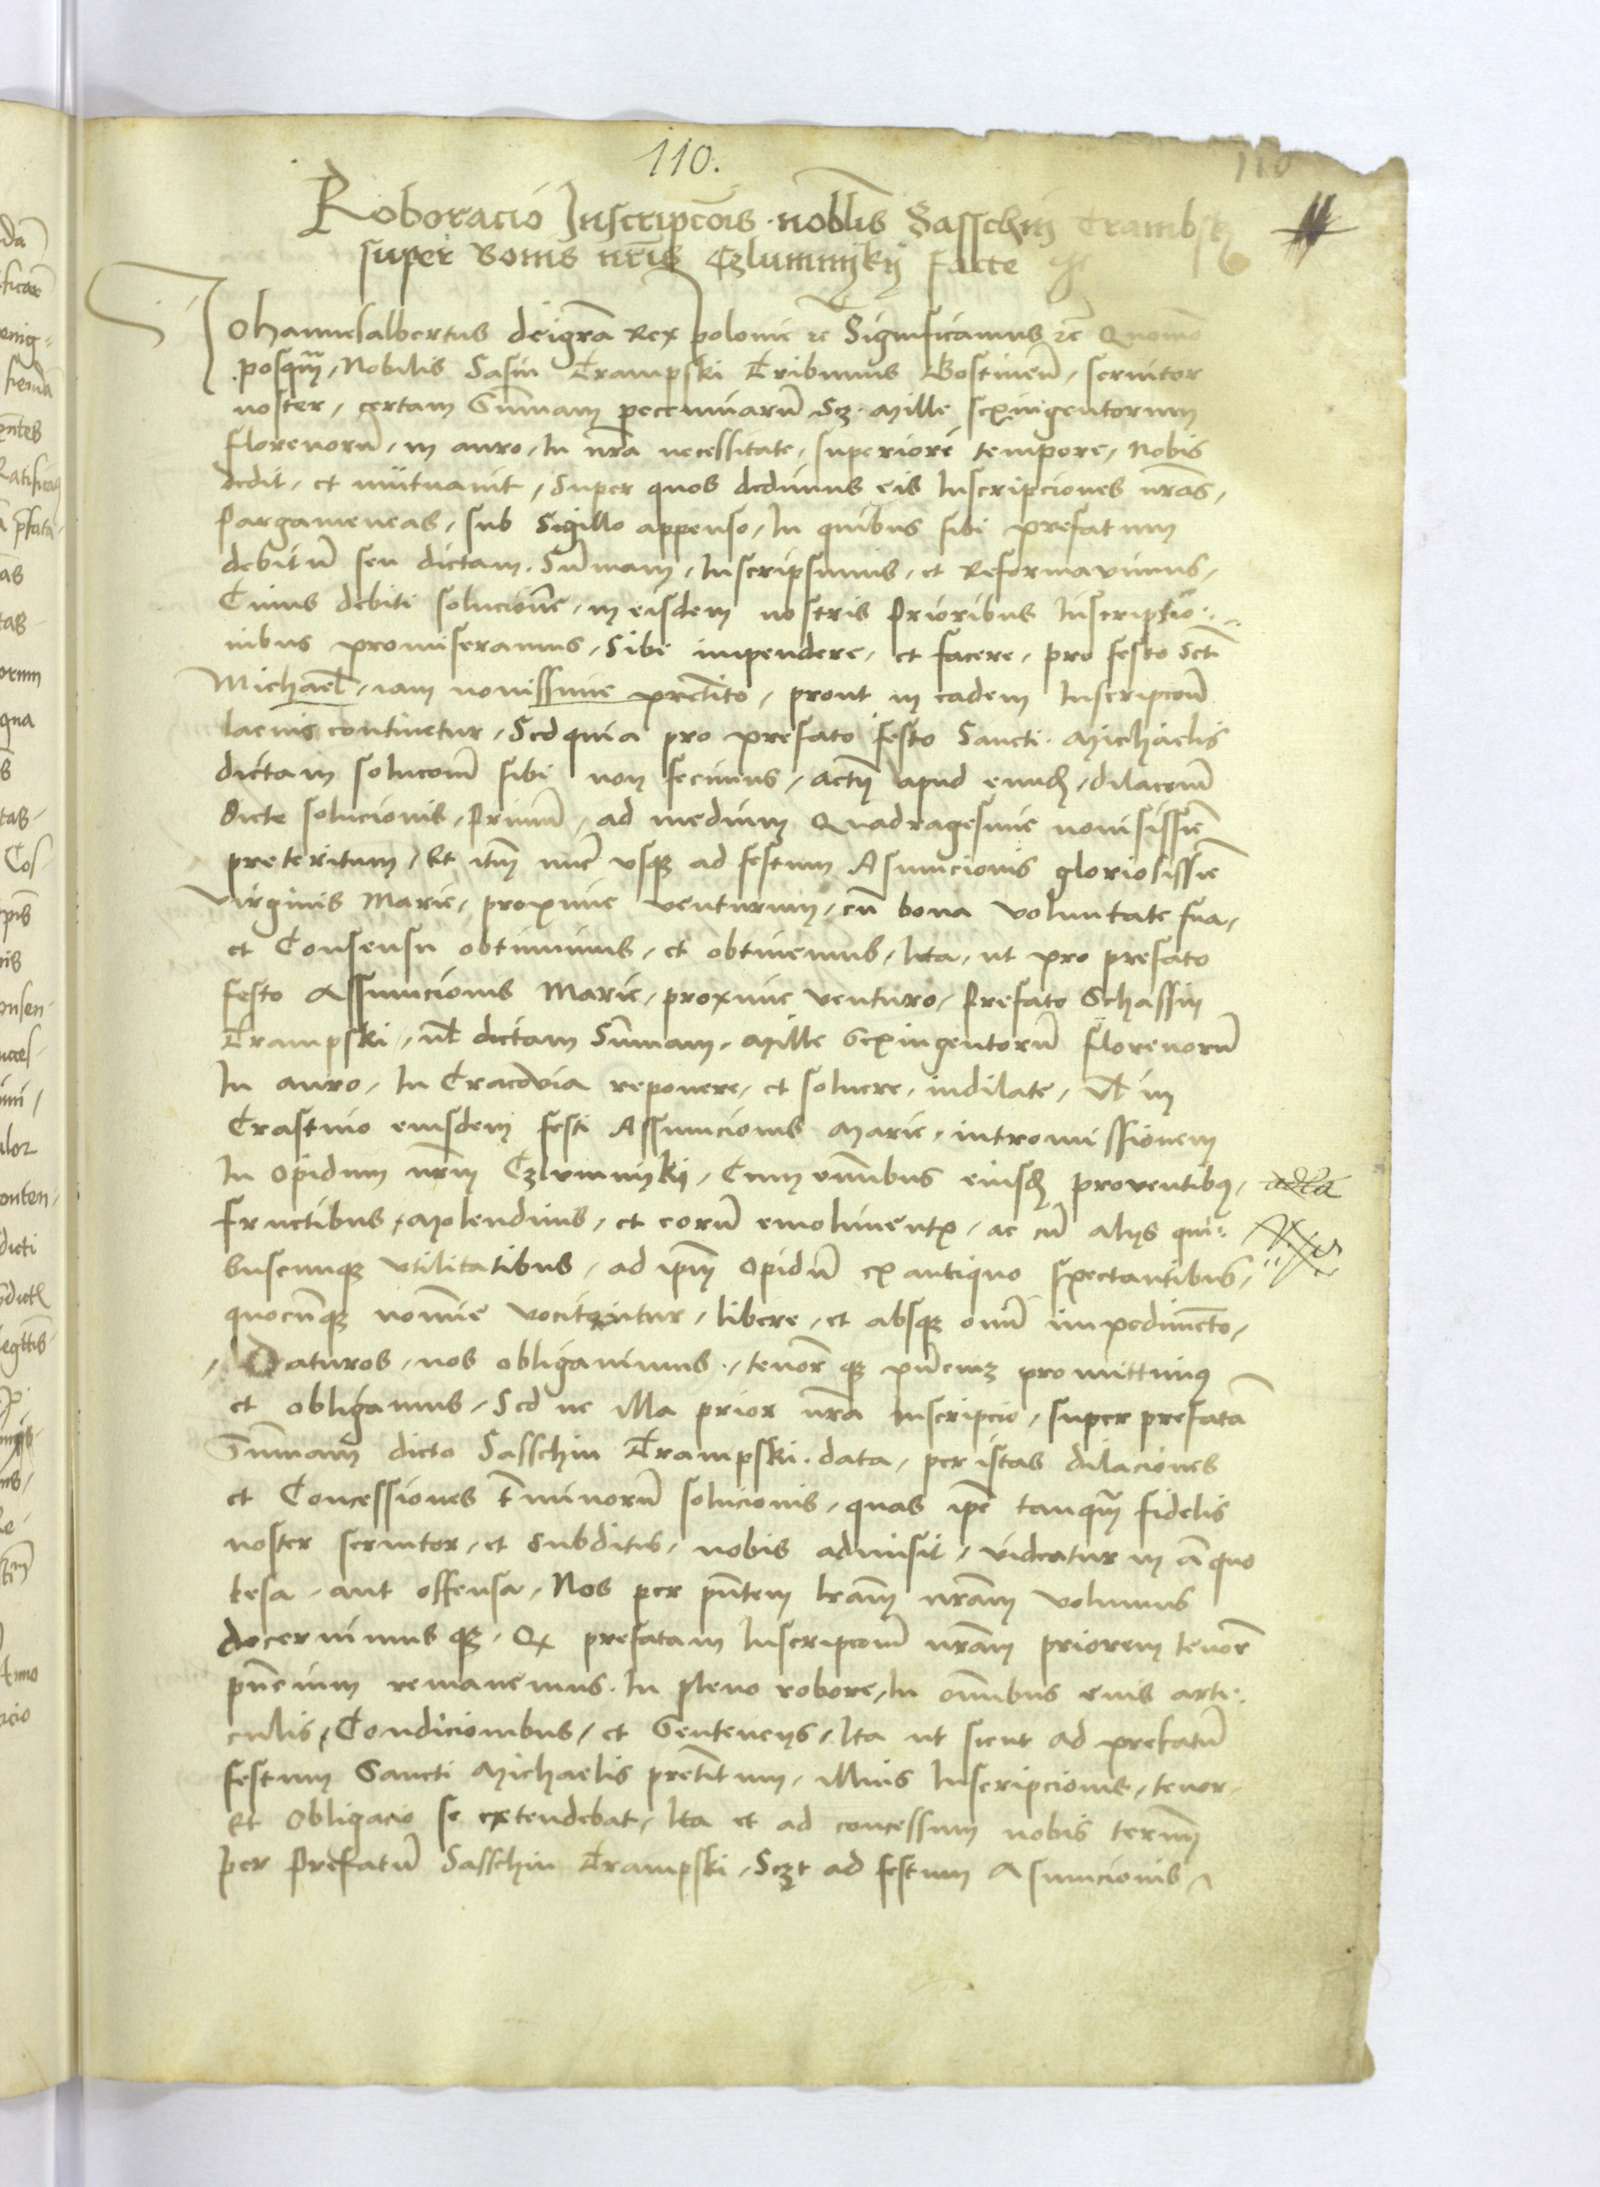 110.
110
Roboracio Inscripcōis noblis Sasschin Trambsk
super Bonis nris Czlumnyky facte
Johannesalbertus deigrā Rex polonie rc Significamus rc Quomo
posqm, Nobilis Sasin Trampski Tribunus Gostinen, servitor
noster, certam Summam peccuniarū Sz. Mille sexingentorum
florenorū, in auro, In nrā necessitate, superiori tempore, Nobis
dedit, et mutuavit, Super quos dedimus eis Inscripciones nrās,
Pargameneas, sub Sigillo appenso, In quibus sibi prefatum
debitū seu dictam Summam, Inscripsimus, et Reformavimus,
Cuius debiti solucione, in eisdem nostris Prioribus Inscripcio-
nibus promiseramus, Sibi impendere, et facere, pro festo Scti
Michael, iam novissime pretito, prout in eadem Inscripconū
lacius continetur, Sed quia pro prefato festo Sancti Michaelis
dictam soluconū sibi non fecimus, actū apud eund, dilaconū
dicte solucionis, Primū, ad medium Quadragesime novisissie
preteritum, Et itm nuc usq ad festum Asumcionis gloriosissie
Virginis Marie, proxime venturum, cū bona voluntate sua,
et Consensu obtinuimus, et obtinemus, Ita, ut pro prefato
festo Assumcionis Marie, proxime venturo, Prefato Schassin
Trampski, ul dictam Summam, Mille Sexingentorū florenorū
In auro, In Cracovia reponere, et solvere, indilate, Vl in
Crastino eiusdem festi Assumcionis Marie, intromissionem
In Opidum nrm Czlumnyky, Cum omnibus eiusd proventibus,
fructibus, Molendinis, et eorū emolimentx, ac cū alys qui-
buscunq utilitatibus, ad ipm Opidū ex antiquo spectantibus,
quocunq nomine vocitentur, libere, et absq omni impedimento,
Daturos, nos obligavimus, tenorē q pnciuz promittimus
et obligamus, Sed ne illa prior nrā inscripcio, super prefata
Summam dicto Sasschin Trampski data, per istas dilaciones
et Concessiones tminorū solucionis, quas ipe tanqm fidelis
noster servitor, et Subditus, nobis admisit, videatur in aquo
lesa, aut offensa, Nos per pntem lram nram volumus
decernimus q, Qx prefatam Inscripconū nram priorem tenorē
pncium remanemus, In pleno robore, In omnibus eius arti-
culis, Condicionibus, et Sentencys, Ita ut sicut ad prefatū
festum Sancti Michaelis pretitum, illius Inscripcionis, tenor,
Et Obligacio se extendebat, Ita et ad concessum nobis termm
per Prefatū Sasschin Trampski, Sczt ad festum Asumcionis,